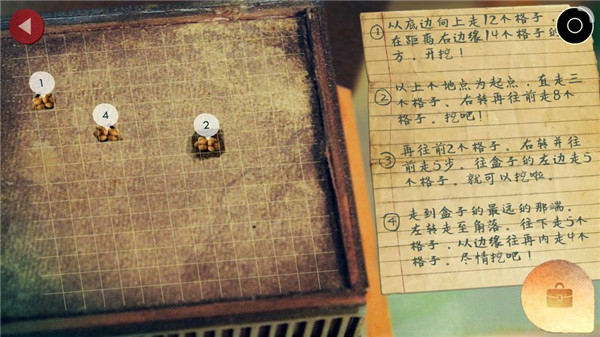 1
4
2
① 以底边向上走12个格子,
在距离右边缘14个格子的
方,开挖!
② 以上个地点为起点,直走三
个格子,右转再往前走8个
格子,挖吧!
③ 再往前2个格子,右转并往
前走5步,往盒子的左边走5
个格子,就可以挖啦。
④ 走到盒子的最远的那端,
左转走至角落,往下走5个
格子,从边缘往再内走4个
格子,尽情挖吧!